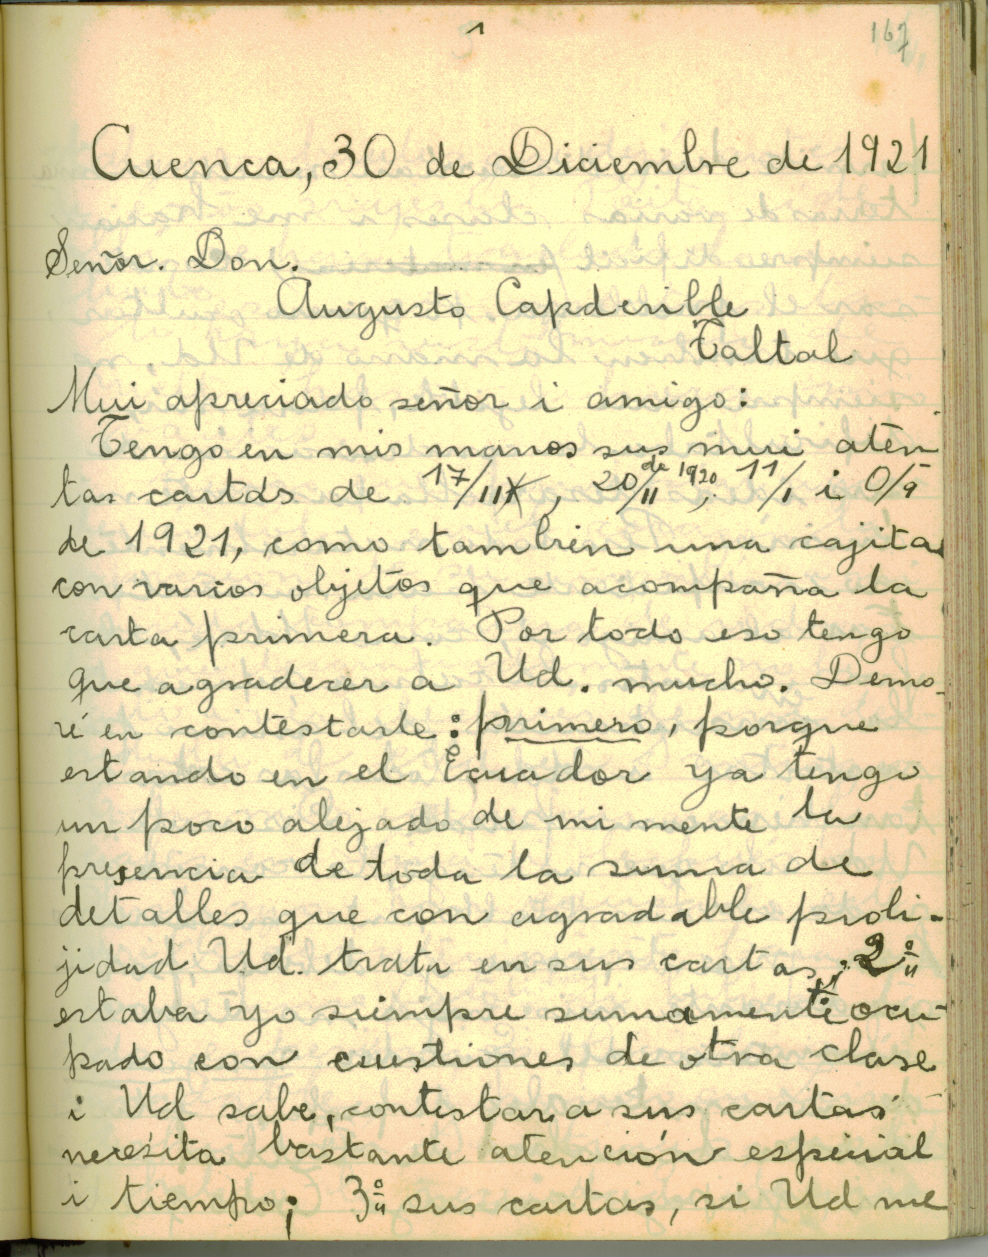 1
167
Cuenca, 30 de Diciembre de 1921
Señor. Don.
Augusto Capdeville
Taltal
Mui apreciado señor i amigo:
Tengo en mis manos sus mui aten
tas cartas de 17/IIX, 20/II de 1920, 11/I i 0/9
de 1921, como tambien una cajita
con varios objetos que acompaña la
carta primera. Por todo eso tengo
que agradecer a Ud. mucho. Demo-
ré en contestarle: primero, porque
estando en el Ecuador ya tengo
un poco alejado de mi mente la
presencia de toda la suma de
detalles que con agradable proli-
jidad Ud. trata en sus cartas; 2º
estaba yo siempre sumamente ocu-
pado con cuestiones de otra clase
i Ud sabe, contestar a sus cartas
necesita bastante atención especial
i tiempo; 3º sus cartas, si Ud me